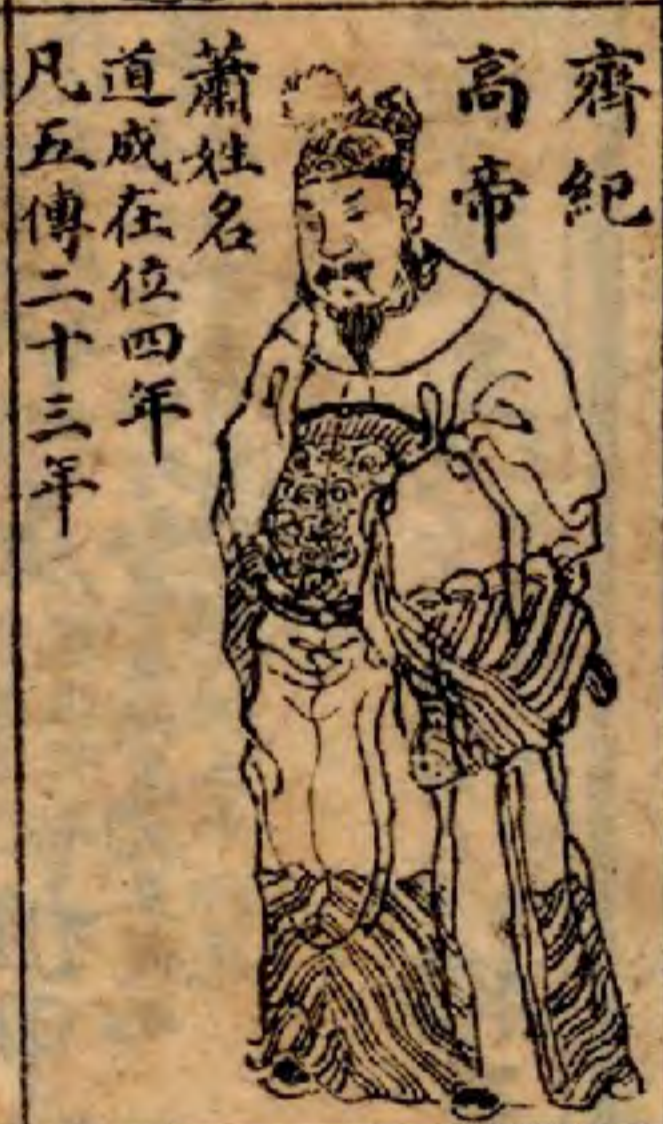 齊紀
高帝
蕭姓名
道成在位四年
凡五傳二十三年